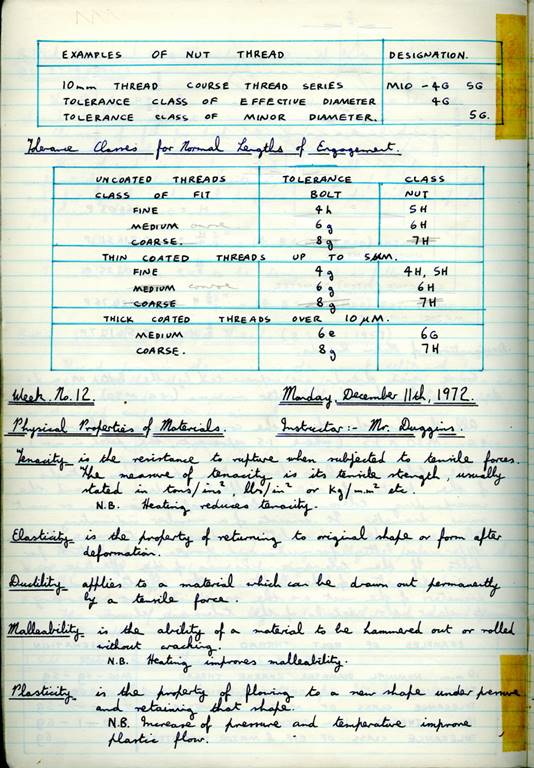 EXAMPLES OF NUT THREAD DESIGNATION.
10mm THREAD COURSE THREAD SERIES M10 - 4G 5G
TOLERANCE CLASS OF EFFECTIVE DIAMETER 4G
TOLERANCE CLASS OF MINOR DIAMETER. 5G.
Tolerance Classes for Normal Lengths of Engagement.
UNCOATED THREADS TOLERANCE CLASS
CLASS OF FIT BOLT NUT
FINE 4h 5H
MEDIUM 6g 6H
COARSE. 8g 7H
THIN COATED THREADS UP TO 5µM.
FINE 4g 4H, 5H
MEDIUM 6g 6H
COARSE 8g 7H
THICK COATED THREADS OVER 10µM.
MEDIUM 6e 6G
COARSE. 8g 7H
Week. No. 12. Monday, December 11th, 1972.
Physical Properties of Materials. Instructor:- Mr. Duggins.
Tenacity is the resistance to rupture when subjected to tensile forces.
The measure of tenacity is its tensile strength, usually
stated in tons/ins², lbs/in² or kg/mm² etc.
N.B. Heating reduces tenacity.
Elasticity is the property of returning to original shape or form after
deformation.
Ductility applies to a material which can be drawn out permanently
by a tensile force.
Malleability is the ability of a material to be hammered out or rolled
without cracking.
N.B. Heating improves malleability.
Plasticity is the property of flowing to a new shape under
and retaining that shape.
N.B. Increase of pressure and temperature improve
plastic flow.